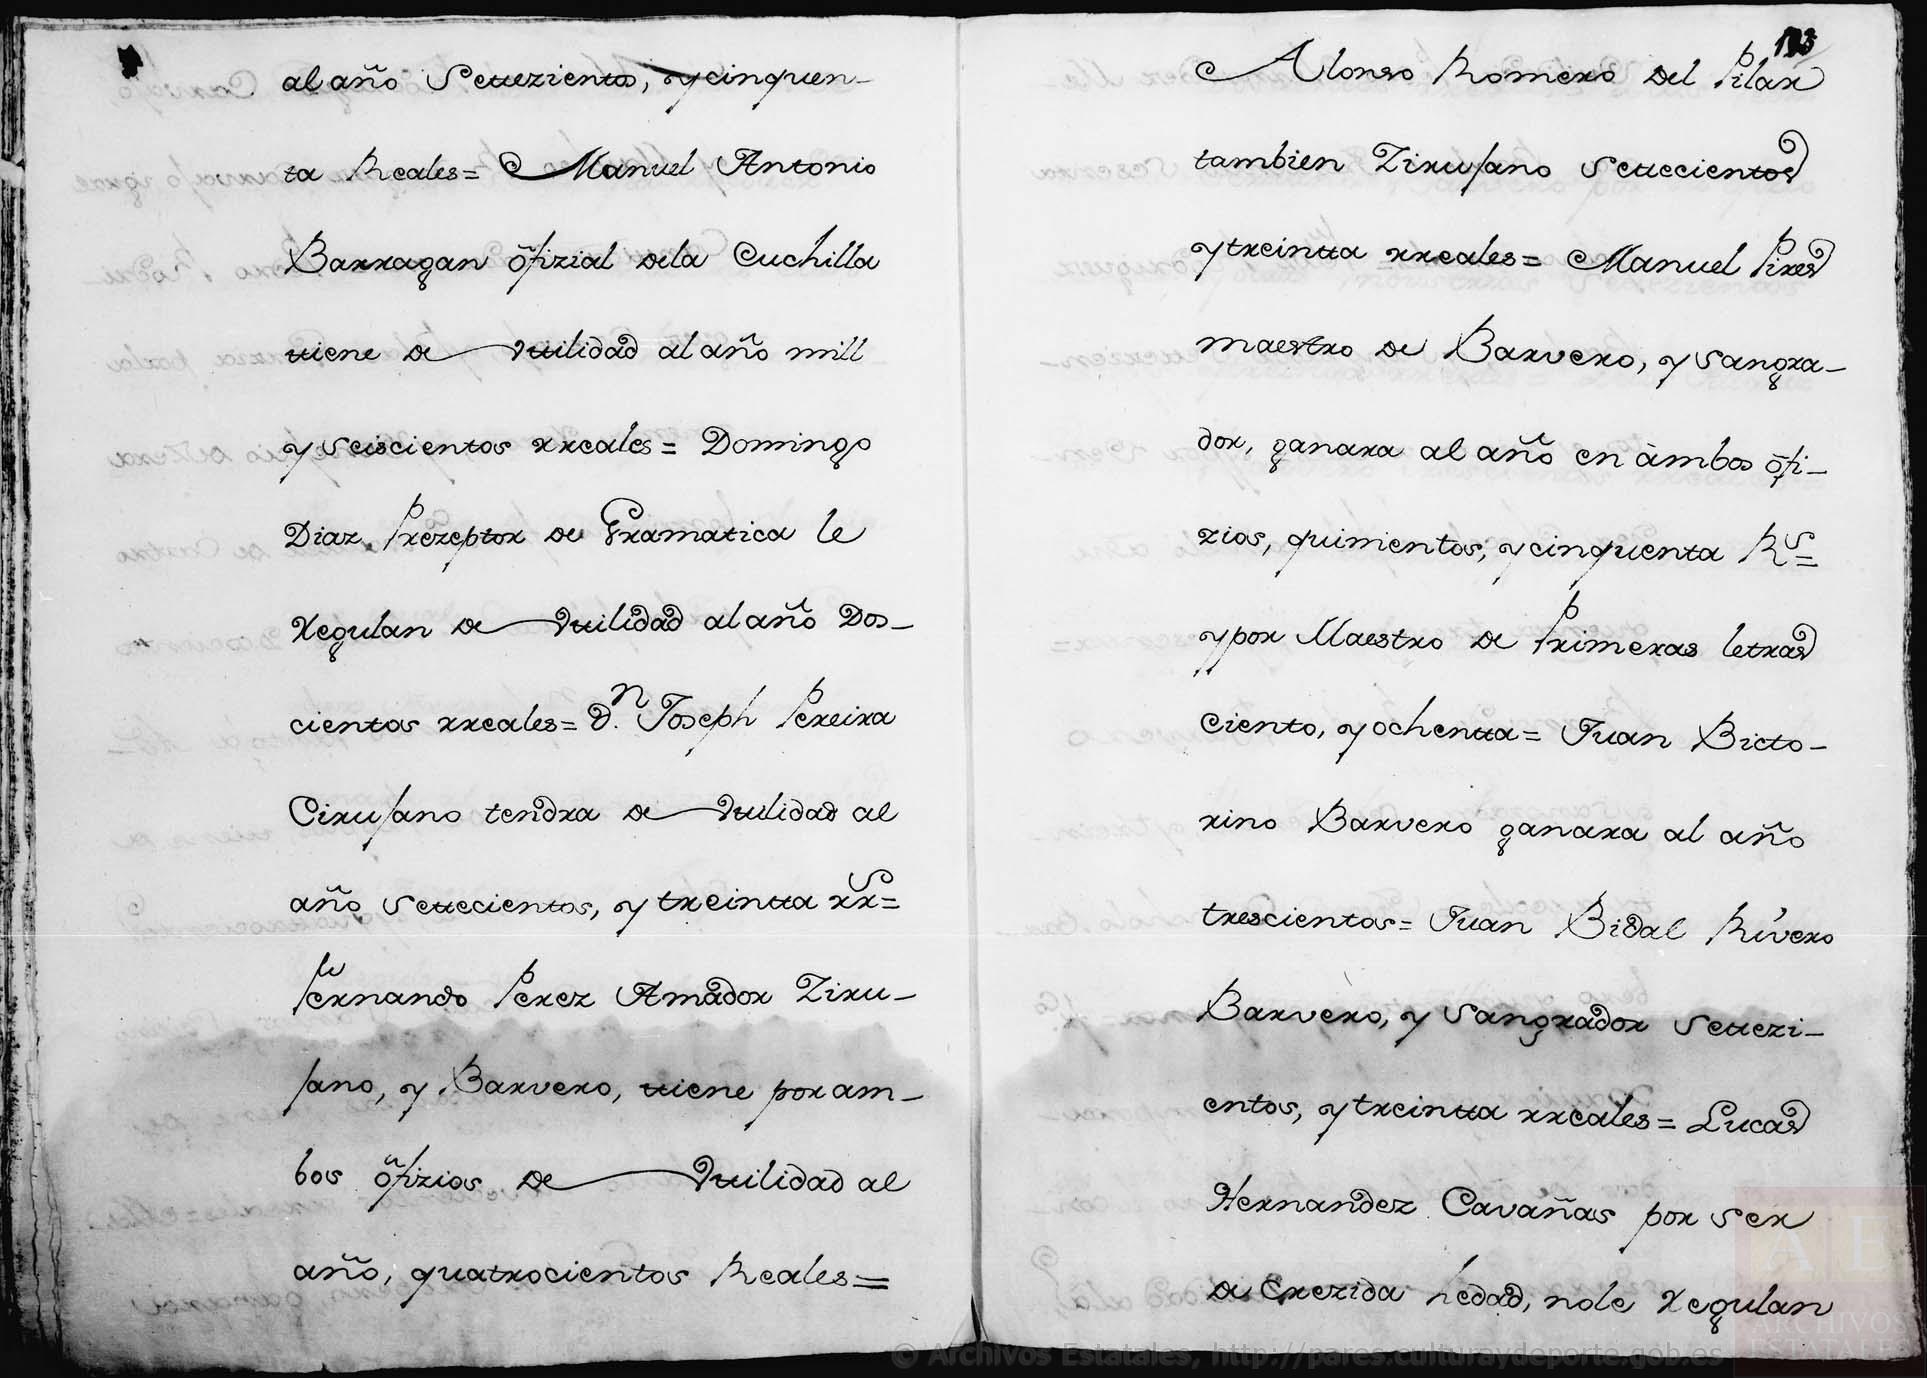 al año Settezientos, y cinquen-
ta Reales= Manuel Antonio
Barragan ofizial dela Cuchilla
ttiene de Vttilidad al año mill
y seiscientos rreales= Domingo
Diaz Prezeptor de Gramatica le
Regulan de Vttilidad al año Dos-
cientos rreales= d.n Joseph Pereira
Cirujano tendra de Vttilidad al
año settecientos, y treintta rr.s=
Fernando Perez Amador Ziru-
jano, y Barvero, ttiene por am-
bos ofizios de Vttilidad al
año, quatrocientos Reales=
193
Alonso Romero del Pilar
tambien Zirujano Settecientos
y treintta rreales= Manuel Pires
maestro de Barvero, y Sangra-
dor, ganara al año en àmbos ofi-
zios, quinientos, y cinquenta R.s=
y por Maestro de Primeras letras
Ciento, y ochentta= Juan Bicto-
rino Barvero ganara al año
trescientos= Juan Bidal Rivero
Barvero, y Sangrador Settezi-
entos, y treintta rreales= Lucas
Hernandez Cavañas por ser
de Crezida hedad, nole Regulan
© Archivos Estatales, http://pares.culturaydeporte.gob.es
AE
ARCHIVOS
ESTATALES